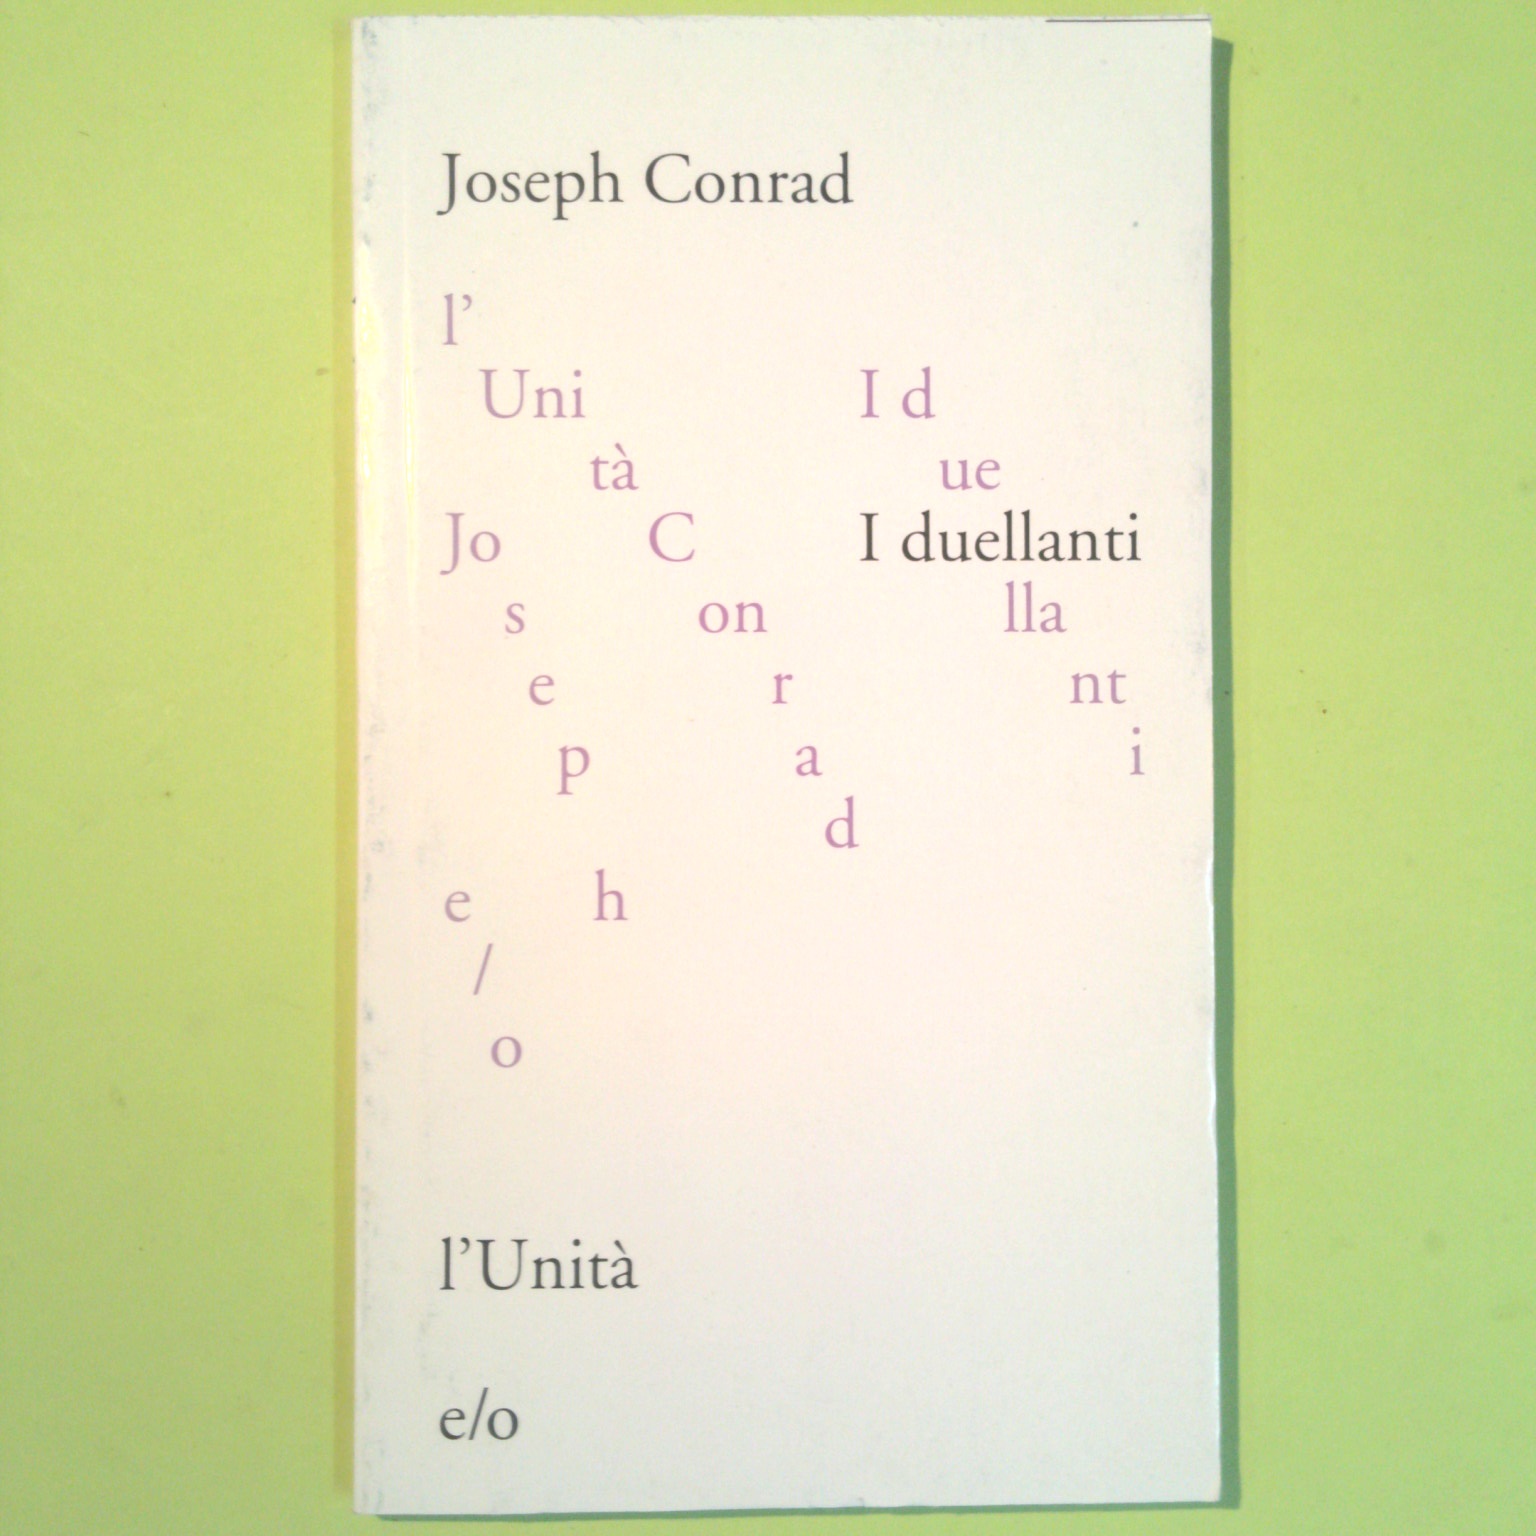 Joseph Conrad
l’
Uni I d
tà ue
Jo C I duellanti
s on lla
e r nt
p a i
d
e h
/
o
l’Unità
e/o